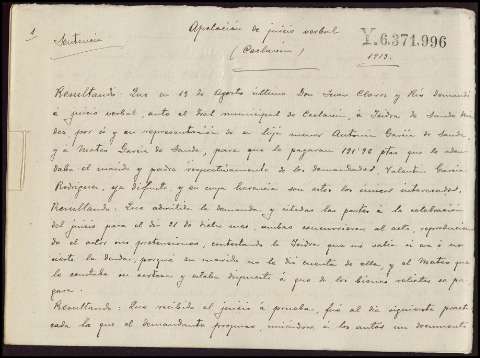 1
Sentencia
Apelación de juicio verbal
(Ceclavín)
Y.6.371.996
1913.
Resultando: Que en 19 de Agosto último Don Juan Claros y Río demandó
a juicio verbal, ante el Tral municipal de Ceclavín, á Isidra de Sande
por sí y en representación de su hijo menor Antonio García de Sande,
y á Mateo García de Sande, para que le pagaran 191'96 ptas que le adeu
daba el marido y padre respectivamente de los demandados, Valentín García
Rodríguez, ya difunto, y en cuya herencia son estos los únicos interesados.
Resultando: Que admitida la demanda, y citadas las partes á la celebración
del juicio para el día 21 de dicho mes, ambas concurrieron al acto, reproducien
do el actor sus pretensiones, contestando la Isidra que no sabía si era ó no
cierta la deuda, porque su marido no le dió cuenta de ella, y el Mateo que
la cantidad es certera y estaba dispuesto á que de los bienes relictos se pa
gase.
Resultando: Que recibido el juicio á prueba, fué al día siguiente practi
cada la que el demandante propuso, uniéndose á los autos un documento